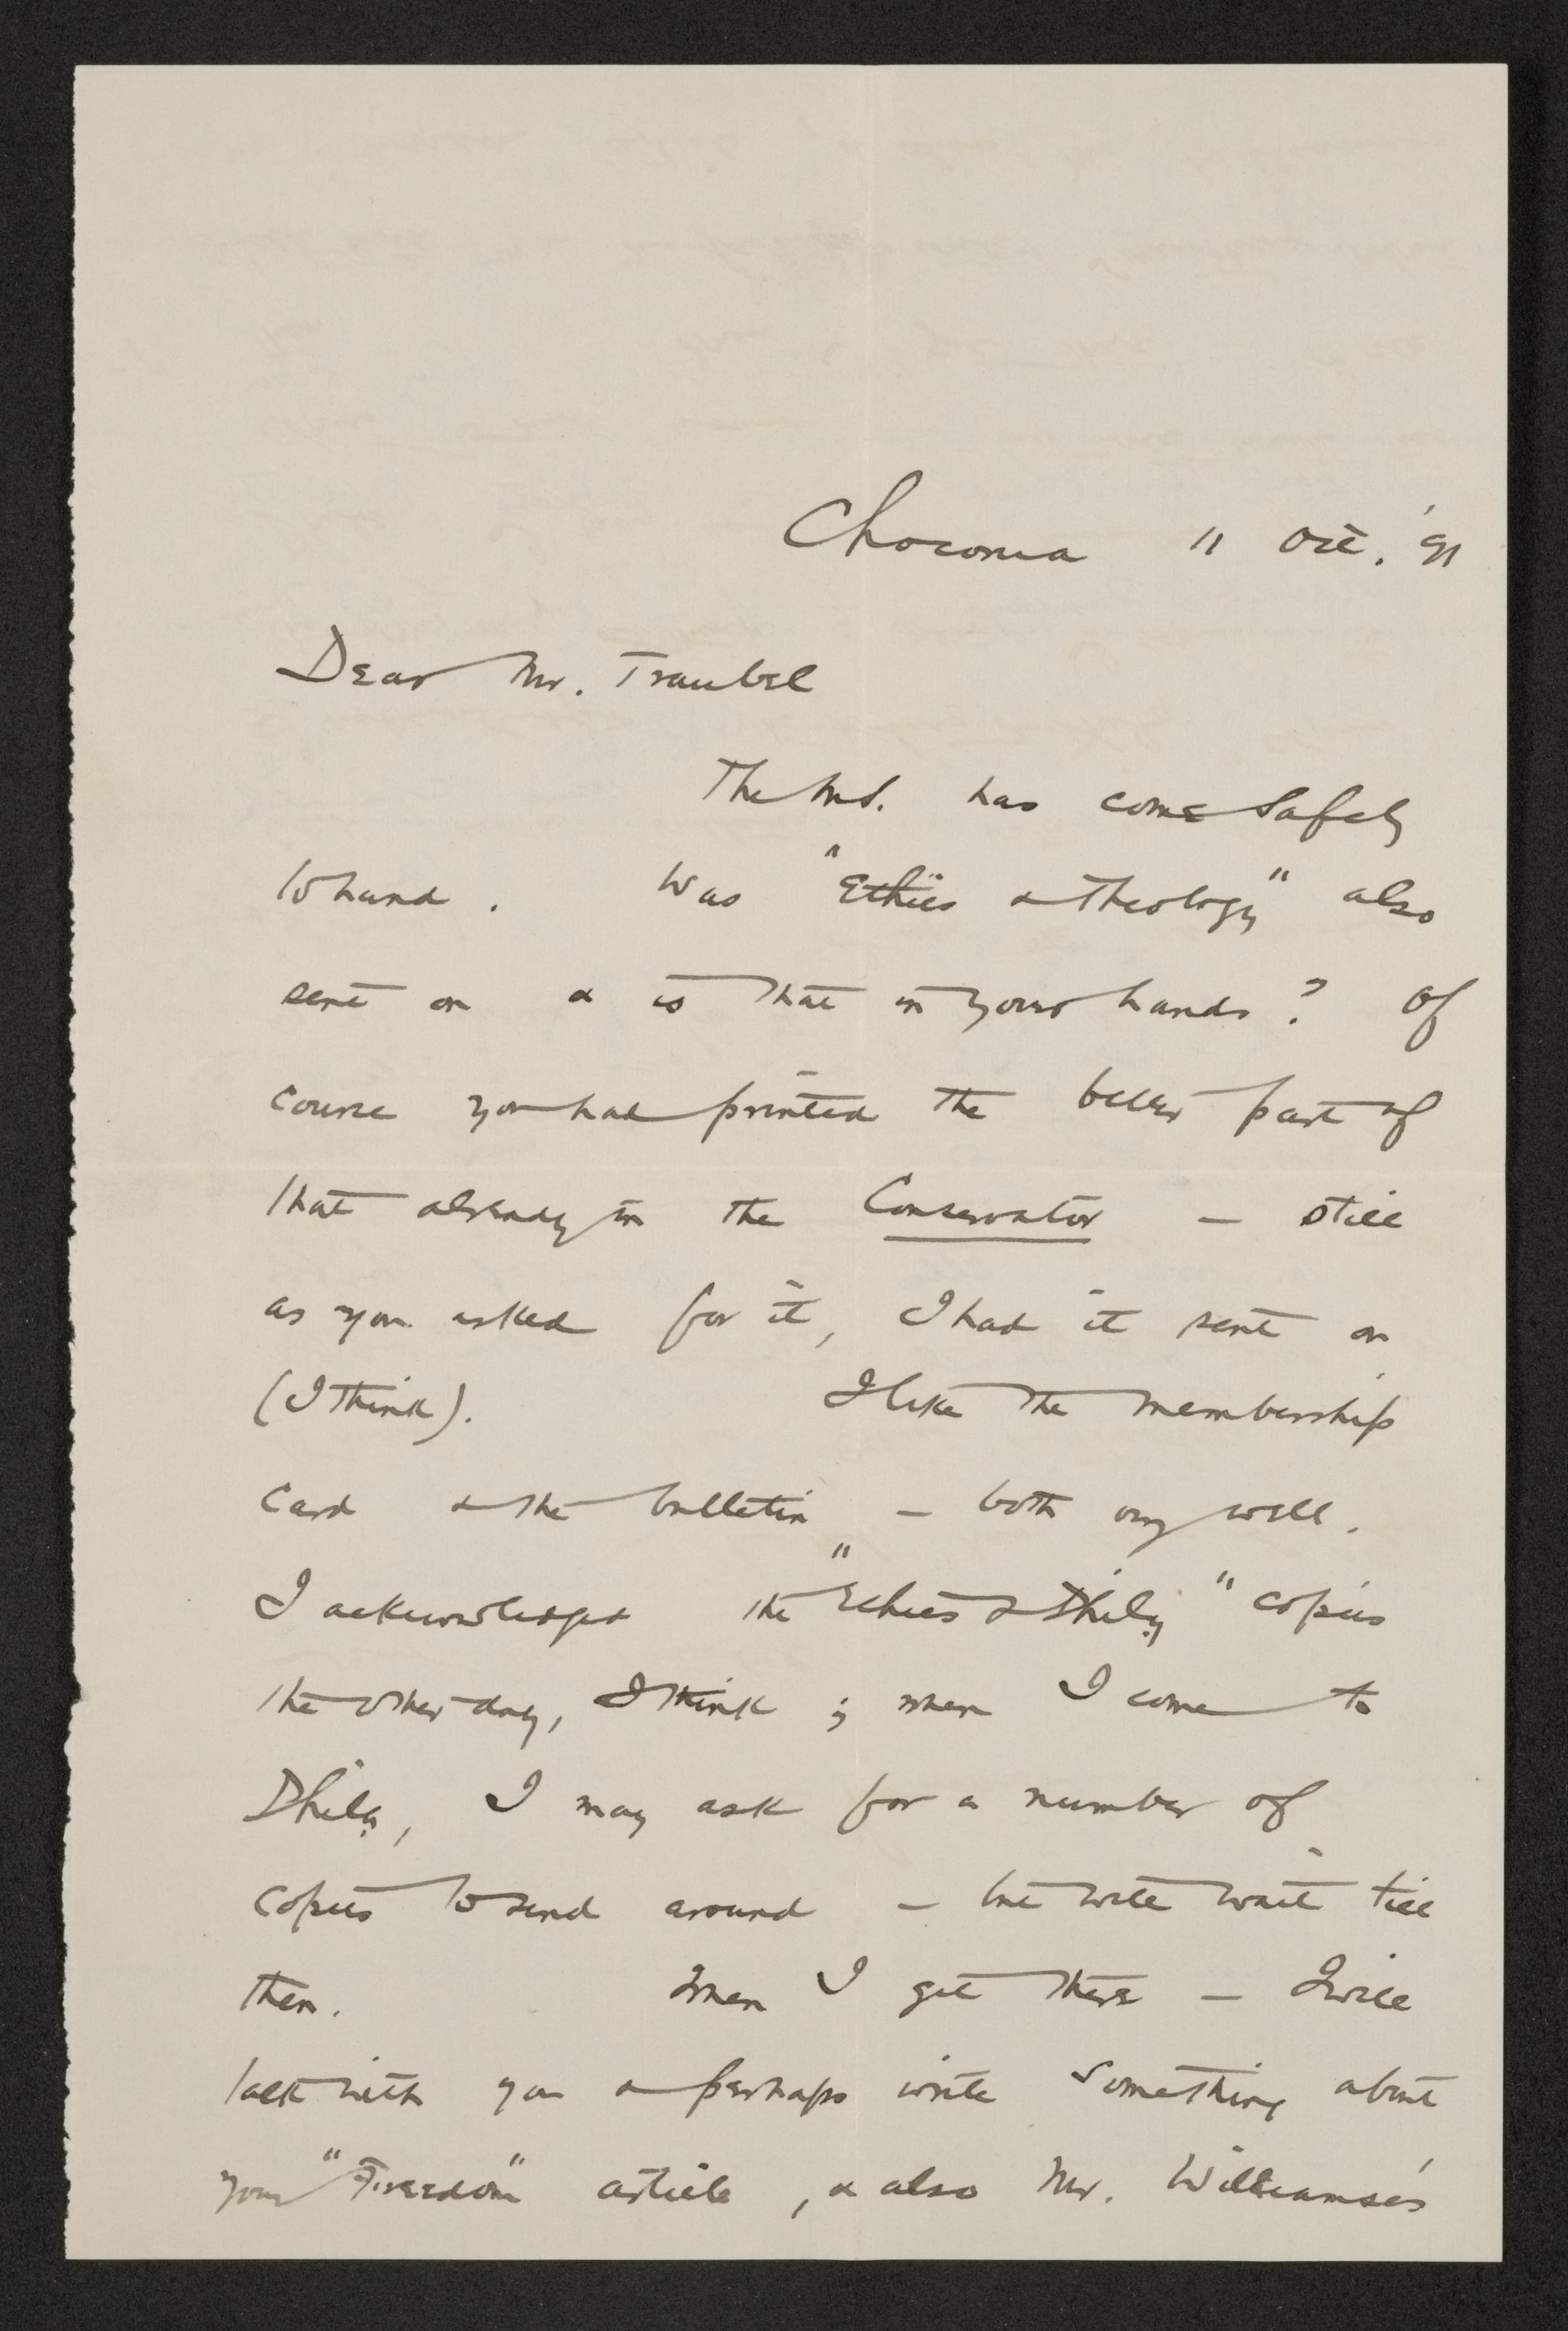 Chocorua 11 Oct. '91
Dear Mr. Traubel
The MS. has come safely
to hand. Was "Ethics & Theology" also
sent on & is that in your hands? Of
course you had printed the better part of
that already in the Conservator — still
as you asked for it, I had it sent on
(I think). I like the membership
card & the bulletin — both very well.
I acknowledged the "Ethics & Phily" copies
the other day, I think; when I come to
Phila, I may ask for a number of
copies to send around — but will wait till
then. When I get there — I will
talk with you & perhaps write something about
your "Freedom" article, & also Mr. Williams's